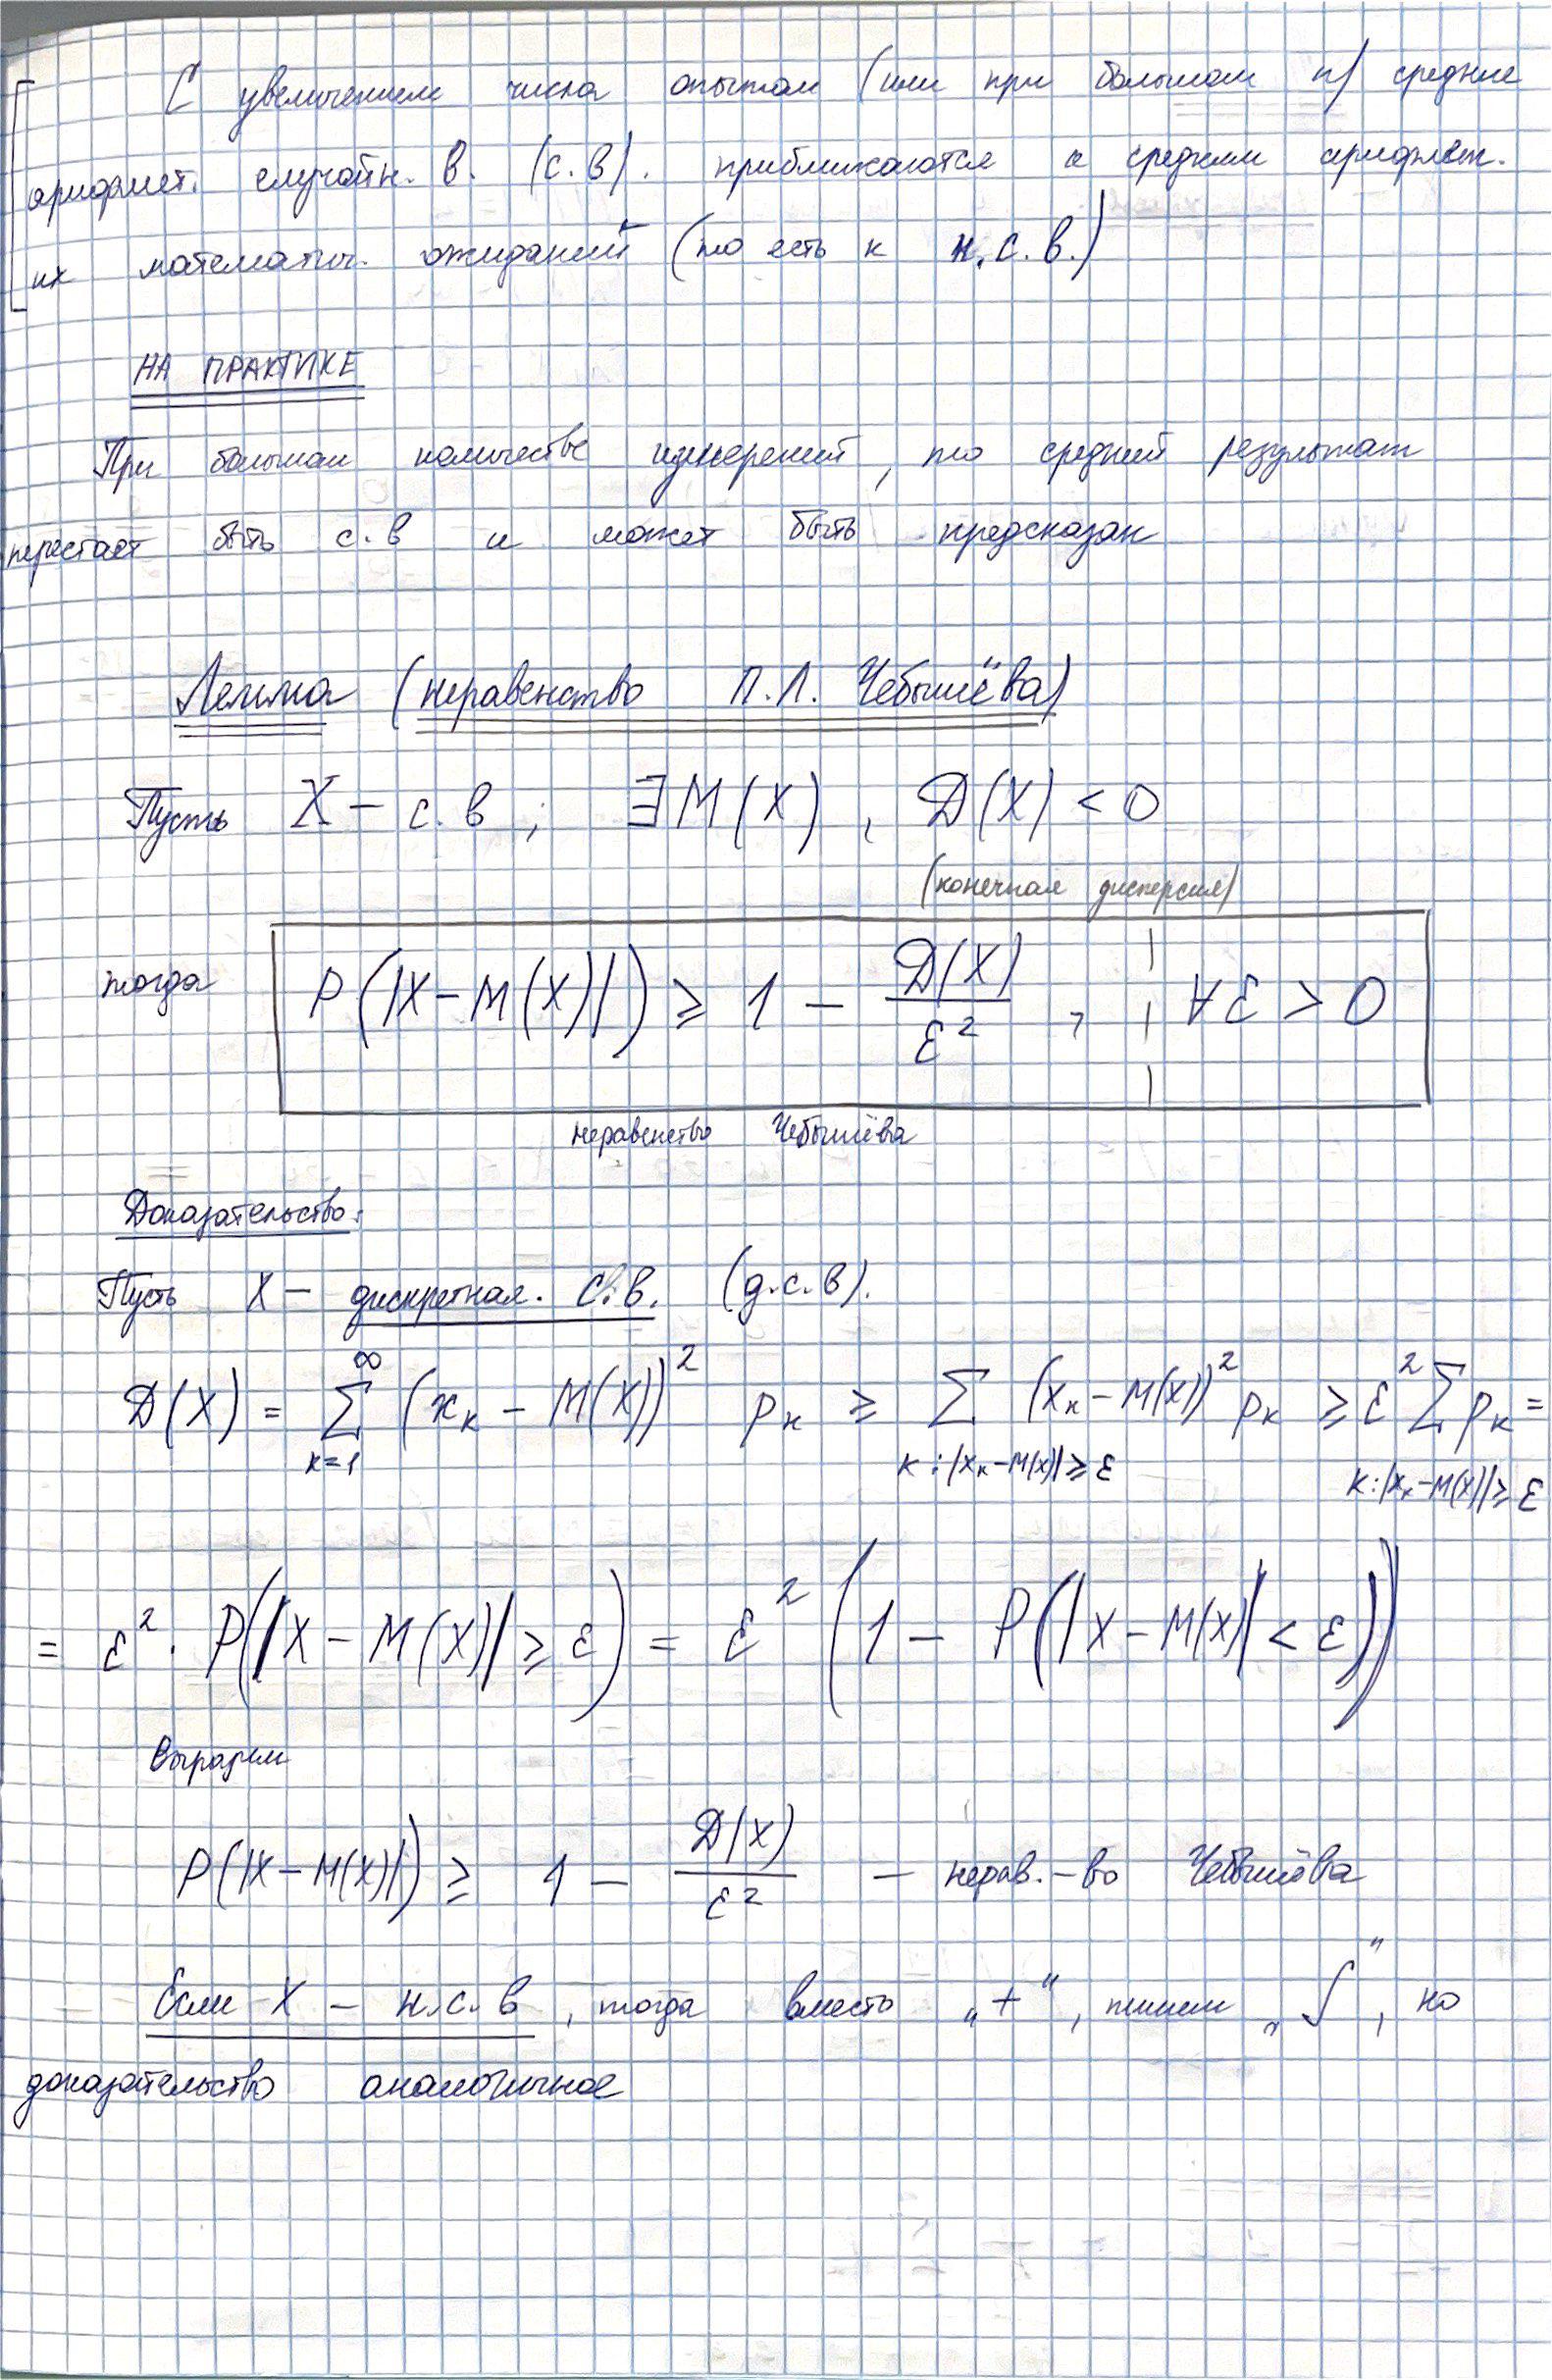 С увеличением числа опытом (или при большом n) средние
арифмет. случайн. в. (с.в). приближаются к средним арифмет.
их математич. ожиданий (то есть к н.с.в.)
НА ПРАКТИКЕ
При большом количестве измерений, то средний результат
перестаёт быть с.в и может быть предсказан
Лемма (неравенство П.Л. Чебышёва)
Пусть X – с.в ; ∃ M(X) , D(X) < 0
(конечная дисперсия)
тогда P(|X – M(X)|) ≥ 1 – D(X)/ε² , ∀ε > 0
неравенство Чебышёва
Доказательство:
Пусть X – дискретная. с.в. (д.с.в).
D(X) = ∑_{k=1}^{∞} (x_k – M(X))² p_k ≥ ∑_{k:|x_k–M(X)|≥ε} (x_k – M(X))² p_k ≥ ε² ∑_{k:|x_k–M(X)|≥ε} p_k =
= ε² · P(|X – M(X)| ≥ ε) = ε² (1 – P(|X – M(X)| < ε))
Выразим
P(|X – M(X)|) ≥ 1 – D(X)/ε² – нерав.-во Чебышёва
Если X – н.с.в , тогда вместо „+“ , пишем „∫“ , но
доказательство аналогичное